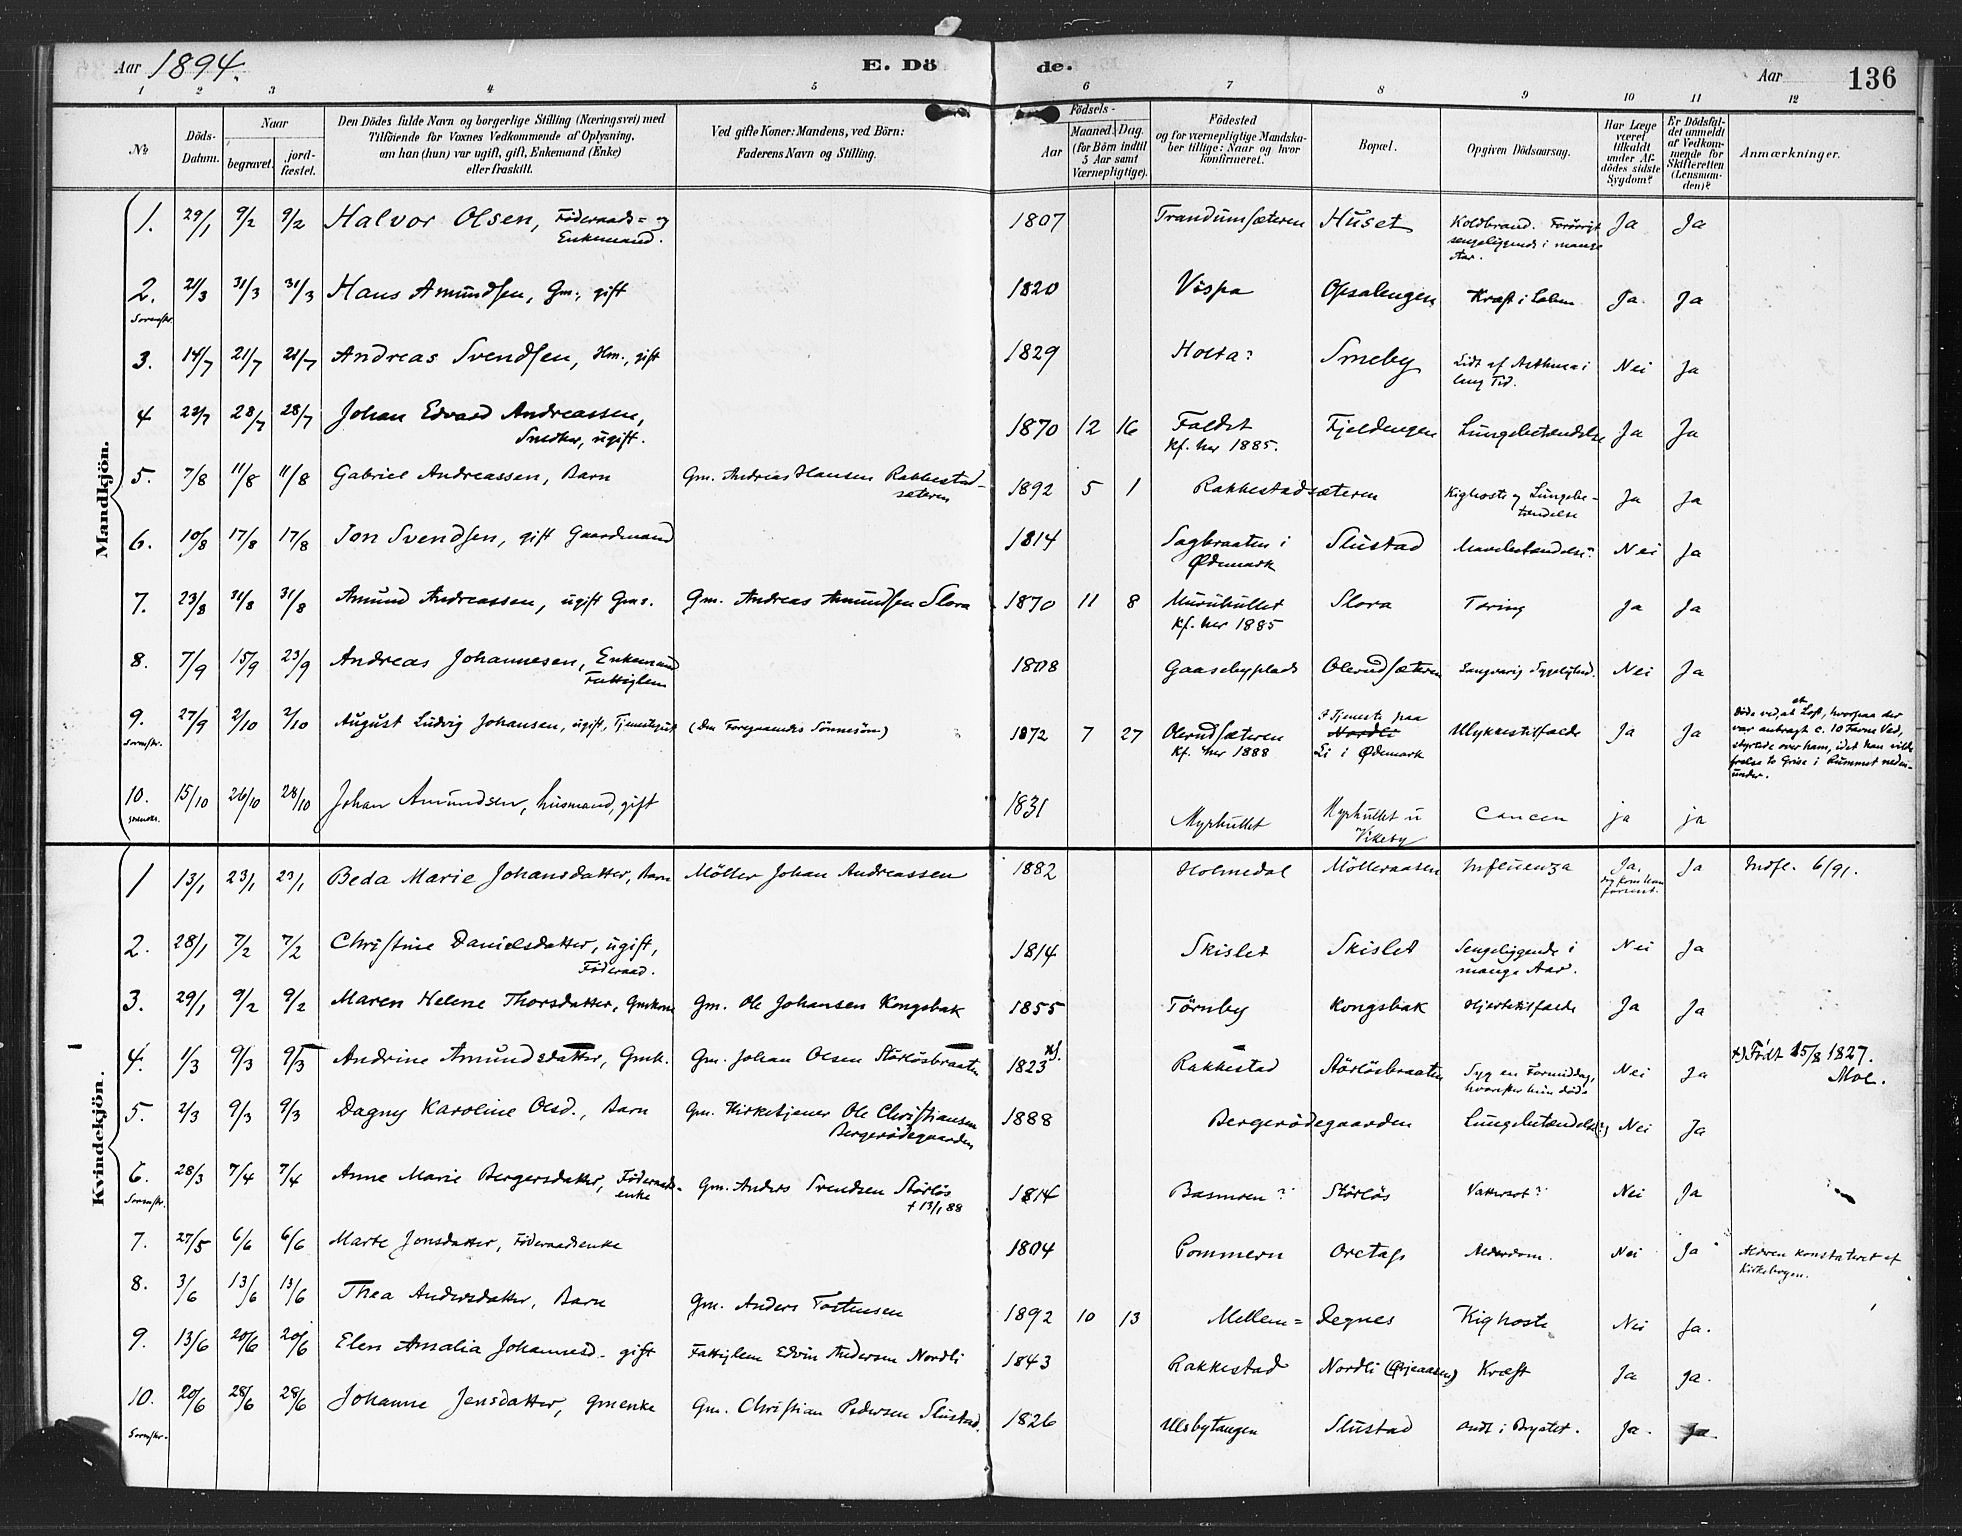 Aar 1894.
E. Dö
de.
Aar
136
1 2 3 4 5 6 7 8 9 10 11 12
No
Döds-Datum.
Naar
begravet.
jordfæstet.
Den Dödes fulde Navn og borgerlige Stilling (Næringsvei) med
Tilföiende for Voxnes Vedkommende af Oplysning,
om han (hun) var ugift, gift, Enkemand (Enke)
eller fraskilt.
Ved gifte Koner: Mandens, ved Börn:
Faderens Navn og Stilling.
Födsels-
Aar
Maaned. Dag.
(for Börn indtil
5 Aar samt
Værnepligtige).
Födested
og for værnepligtige Mandska-
ber tillige: Naar og hvor
konfirmeret.
Bopæl.
Opgiven Dödsaarsag.
Har Læge
været
tilkaldt
under Af-
dödes sidste
Sygdom?
Er Dödsfal-
det anmeldt
af Vedkom-
mende for
Skifteretten
(Lensman-
den)?
Anmærkninger.
Mandkjön.
1. 29/1 9/2 9/2 Halvor Olsen, Föderaads- og Enkemand. 1807 Trandumsæteren Huset Koldbrand. Forövrigt sengeliggende i mange Aar. Ja Ja
2. 21/3 31/3 31/3 Hans Amundsen, Gm., gift 1820 Vispa Opsalengen Kræft i Ja. Ja
3. 14/7 21/7 21/7 Andreas Svendsen, Hm., gift 1829 Holta? Smeby Lidt af Asthma i lang Tid. Nei Ja
4 22/7 28/7 28/7 Johan Edvard Andreassen, Snedker, ugift. 1870 12 16 Faldet Kf. her 1885. Fjeldengen Lungebetændelse Ja Ja
5. 7/8 11/8 11/8 Gabriel Andreassen, Barn Gm. Andreas Hansen Rakkestadsæteren 1892 5 1 Rakkestadsæteren Kighoste og Lungebetændelse Ja Ja
6. 10/8 17/8 17/8 Jon Svendsen, gift Gaardmand 1814 Sagbraaten i Ødemark Slustad Mavebetændelse? Nei Ja
7. 23/8 31/8 31/8 Amund Andreassen, ugift Gms. Gm. Andreas Amundsen Slora 1870 11 8 Kf. her 1885 Slora Tæring Ja Ja
8. 7/9 15/9 23/9 Andreas Johannesen, Enkemand Fattiglem 1808 Gaasebyplads Olerudsæteren Langvarig Sygelighed. Nei Ja
9. 27/9 2/10 2/10 August Ludvig Johansen, ugift, Tjenestegut (Den Foregaaendes Sönnesön) 1872 7 27 Olerudsæteren Kf. her 1888 I Tjeneste paa Nordli Li i Ødemark Ulykkestilfælde Ja Ja Döde ved, at et Loft, hvorpaa der var anbragt c. 10 Favne Ved, styrtede over ham, idet han vilde frelse to Grise i Rummet nedenunder.
10. 15/10 26/10 28/10 Johan Amundsen, husmand, gift 1831 Myrhullet Myrhullet u Vikeby Cancer ja ja
Kvindekjön.
1 13/1 23/1 23/1 Beda Marie Johansdatter, Barn Möller Johan Andreassen 1882 Holmedal Mölleraasen Influenza Ja, Ja Indfl. 6/91.
2. 28/1 7/2 7/2 Christine Danielsdatter, ugift, Föderaad. 1814 Skislet Skislet Sengeliggende i mange Aar. Nei Ja
3. 29/1 9/2 9/2 Maren Helene Thorsdatter, Gmkone Gm. Ole Johansen Kongsbak 1855 Törnby Kongsbak Hjertetilfælde Ja Ja
4. 1/3 9/3 9/3 Andrine Amundsdatter, Gmk. Gm. Johan Olsen Störlösbraaten 1823 Rakkestad Störlösbraaten Syg en Formiddag, hvorefter hun döde Nei Ja x) Födt 15/8 1827. Moe.
5. 2/3 9/3 9/3 Dagny Karoline Olsd., Barn Gm. Kirketjener Ole Christiansen Bergerödegaarden 1888 Bergerödegaarden Lungebetændelse(?) Nei Ja
6. 28/3 7/4 7/4 Anne Marie Bergersdatter, Föderaads-enke Gm. Anders Svendsen Störlös † 13/1 88 1814 Basmoen? Störlös Vattersot? Nei Ja
7. 27/5 6/6 6/6 Marte Jonsdatter, Föderaadsenke 1804 Pommern Orctags Alderdom. Nei Ja Alderen konstateret af Kirkebogen.
8. 3/6 13/6 13/6 Thea Andersdatter, Barn Gm. Anders Tostensen 1892 10 13 Mellem-Degnes Kighoste Nei Ja.
9. 13/6 20/6 20/6 Elen Amalia Johannesd. gift Fattiglem Edvin Andersen Nordli 1843 Rakkestad Nordli Kræft Ja Ja.
10. 20/6 28/6 28/6 Johanne Jensdatter, Gmenke Gm. Christian Pedersen Slustad. 1826 Ulsbytangen Slustad Ondt i Brystet. Ja. Ja.